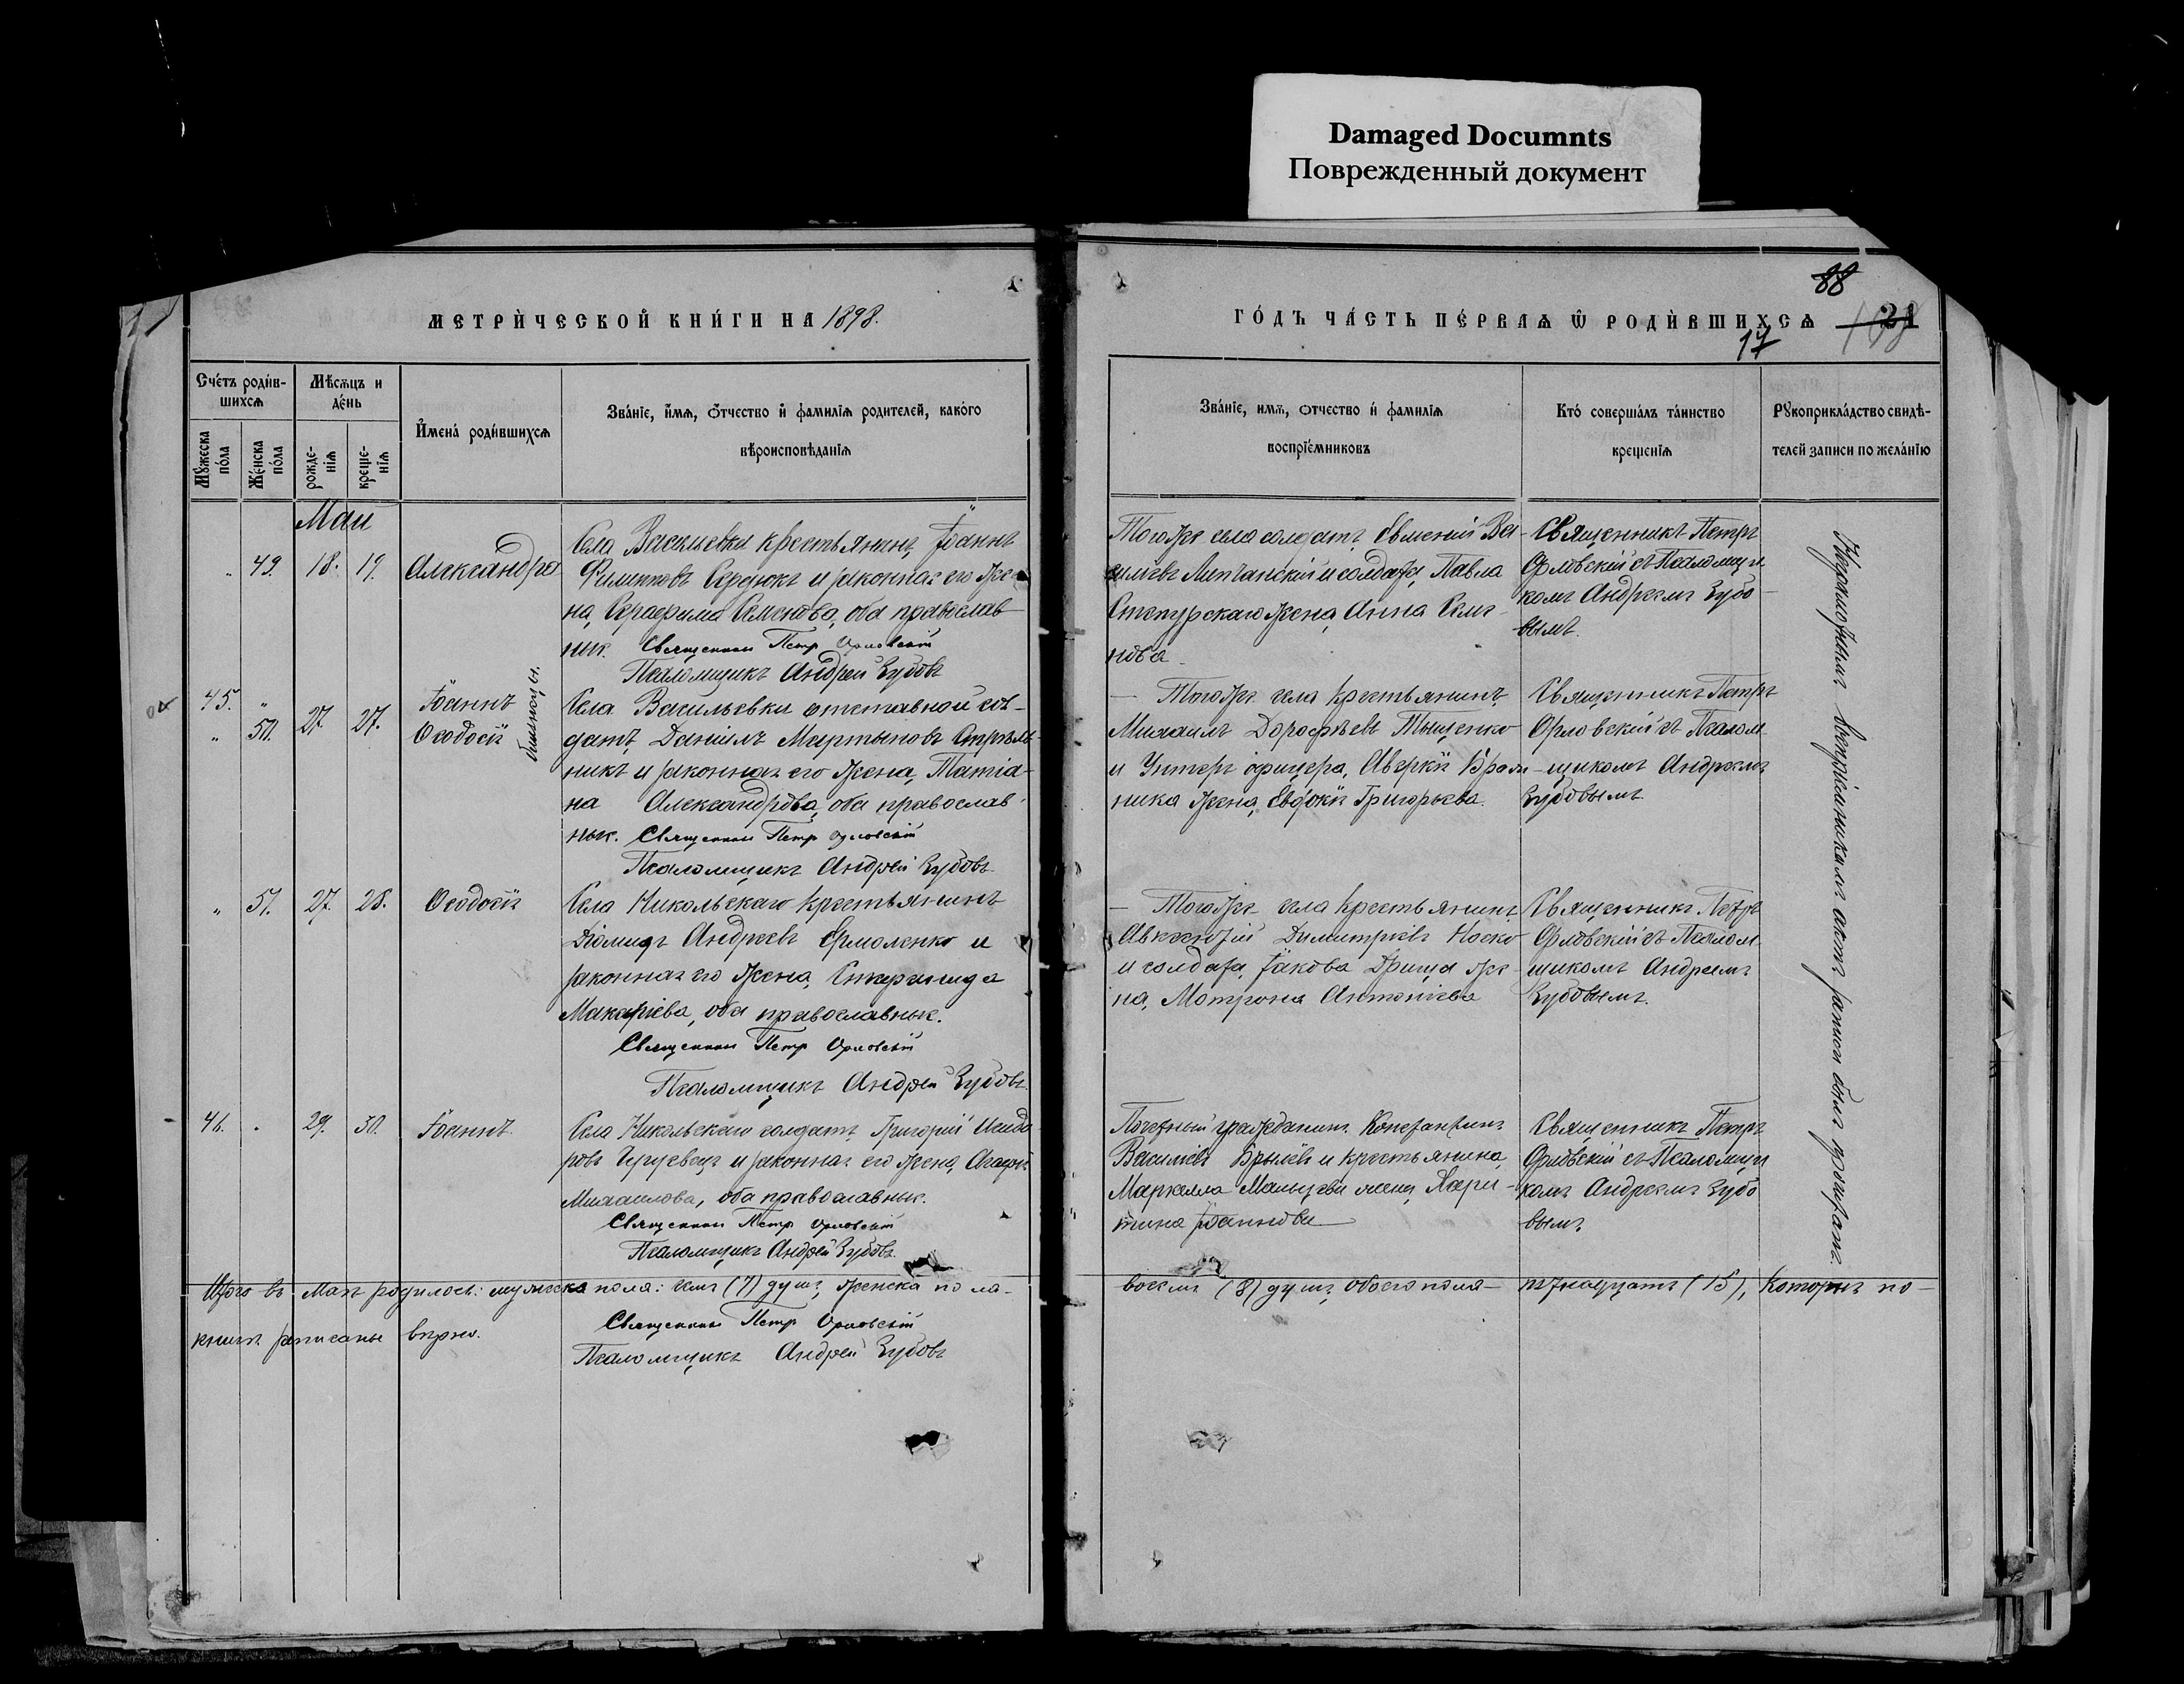 Damaged Documnts
Поврежденный документ
88
МЕТРИ́ЧЕСКОЙ КНИ́ГИ НА 1898.
ГО́ДЪ ЧА́СТЬ ПЕ́РВАѦ Ѡ РОДИ́ВШИХСѦ
21
17
Сче́тъ роди́в-
шихсѧ
Мꙋ́жеска
по́ла
Же́нска
по́ла
Мѣ́сѧцъ и
де́нь
рожде-
нїѧ
креще-
нїѧ
Имена́ роди́вшихсѧ
Зва́нїе, и́мѧ, ѻ́тчество и фамилїѧ родителей, како́го
вѣроисповѣ́данїѧ
Зва́нїе, имѧ, отчество и фамилїѧ
воспрїе́мниковъ
Кто́ соверша́лъ та́инство
крещенїѧ
Рꙋкоприкла́дство свидѣ́-
телей записи по жела́нїю
Май
„ 49. 18. 19. Александра
Села Васильевки крестьянинъ Іоаннъ
Филипповъ Сердюкъ и законная его же-
на, Серафима Семенова, оба православ
ные. Священникъ Петръ Орловскій
Псаломщикъ Андрей Зубовъ
Тогоже села солдатъ Евменій Ва-
сильевъ Липчанскій и солдата Павла
жена Анна Семе-
нова
Священникъ Петръ
Орловскій съ Псаломщи
комъ Андреемъ Зубо-
вымъ.
45. „
„ 50. 27. 27.
Іоаннъ
Ѳеодосія
близнецы.
Села Васильевки отставной сол-
датъ Даніилъ Мартыновъ Стрель-
никъ и законная его жена, Татіа-
на Александрова, оба православ-
ные. Священникъ Петръ Орловскій
Псаломщикъ Андрей Зубовъ
— Тогоже села крестьянинъ
Михаилъ Дорофѣевъ Тыщенко
и Унтеръ офицера, Аверкія
ника жена, Евдокія Григорьева.
Священникъ Петръ
Орловскій съ Псалом
-щикомъ Андреемъ
Зубовымъ.
„ 51. 27. 28. Ѳеодосія
Села Никольскаго крестьянинъ
Діомидъ Андреевъ Ермоленко и
законная его жена,
Макаріева, оба православные.
Священникъ Петръ Орловскій
Псаломщикъ Андрей Зубовъ.
— Тогоже села крестьянинъ
Авксентій Димитріевъ Носко
и солдата, Іакова Грица же-
на, Матрона Антоніева
Священникъ Петръ
Орловскій съ Псалом
щикомъ Андреемъ
Зубовымъ.
46. „ 29. 30. Іоаннъ.
Села Никольскаго солдатъ Григорій Исидо
ровъ и законная его жена, Агафія
Михаилова, оба православные.
Священникъ Петръ Орловскій
Псаломщикъ Андрей Зубовъ.
Почетный гражданинъ Константинъ
Василіевъ Брылёвъ и крестьянина,
Маркелла жена Хари-
тина Іоаннова
Священникъ Петръ
Орловскій съ Псаломщи
комъ Андреемъ Зубо
вымъ.
Неграмотнымъ воспріемникамъ актъ записи былъ прочитанъ.
Итого въ Маѣ родилось: мужеска пола: семь (7) душъ, женска пола-
восемь (8) душъ, обоего пола — пятнадцать (15), которые по-
книгѣ записаны вѣрно.
Священникъ Петръ Орловскій
Псаломщикъ Андрей Зубовъ